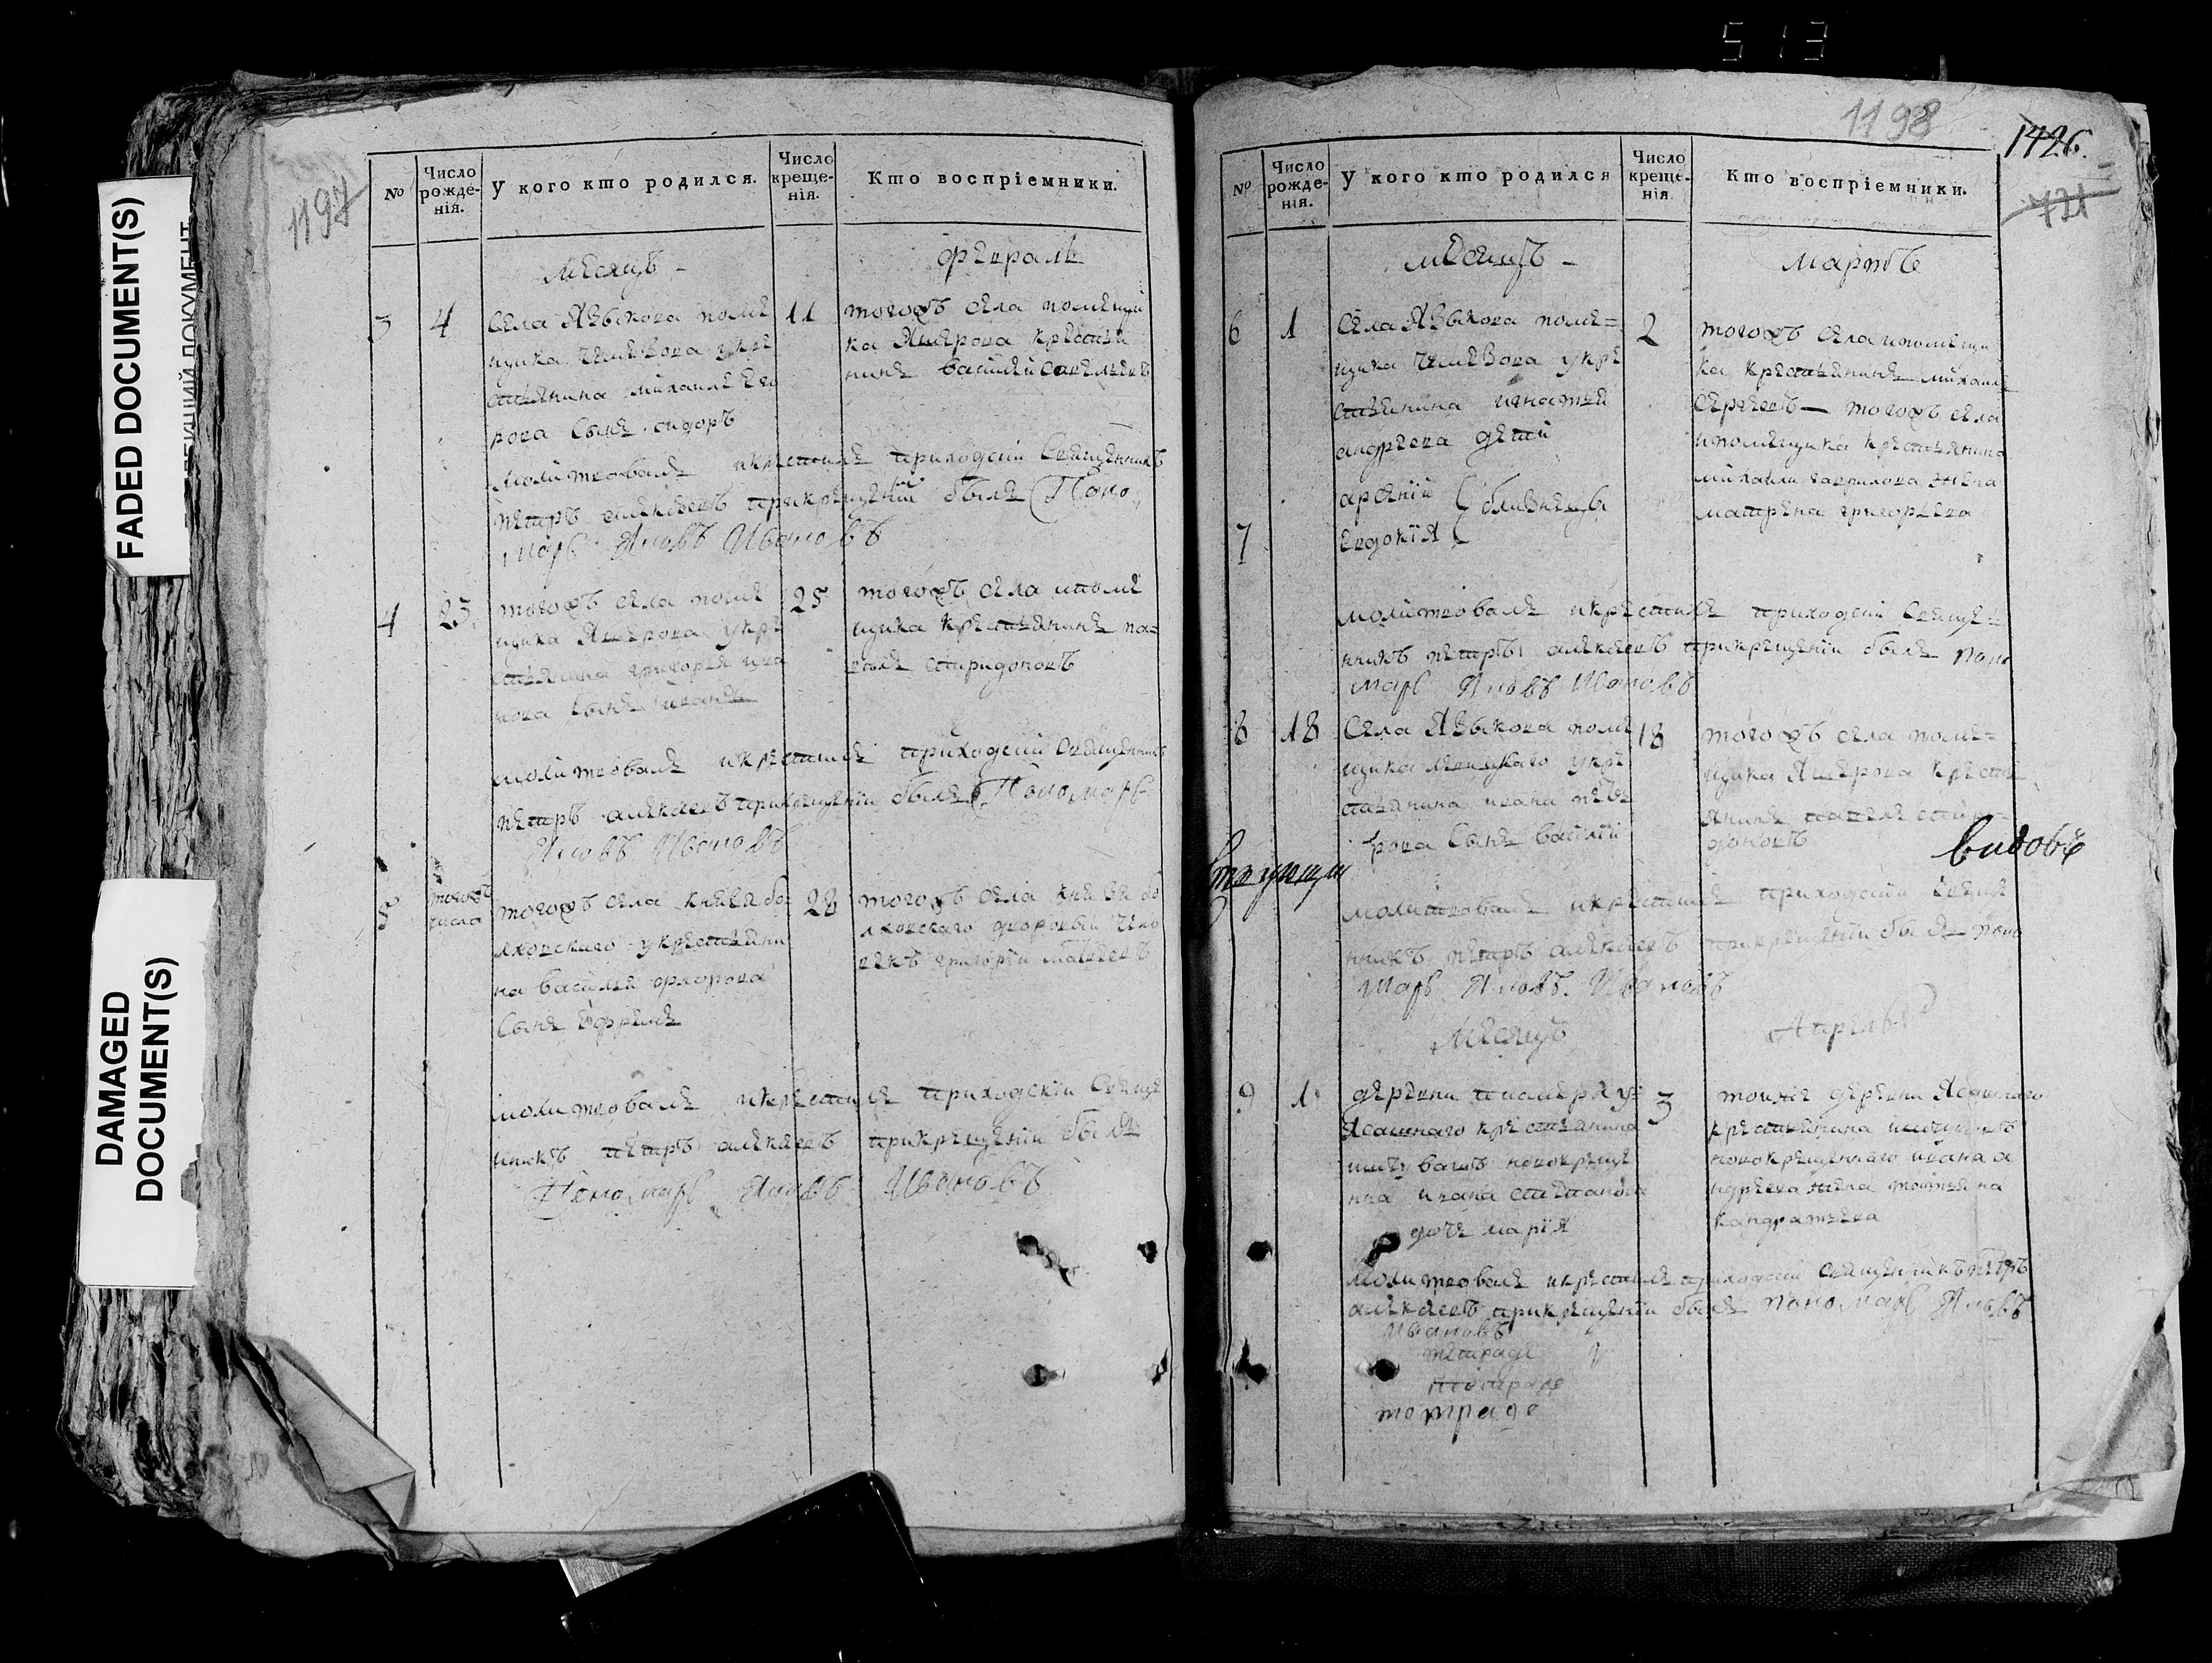 513
FADED DOCUMENT(S)
DAMAGED
DOCUMENT(S)
1197
№
Число рожде-нія.
У кого кто родился.
Число креще-нія.
Кто воспріемники.
месяцъ
февраль
3
4
села Языкова поме
щика укре
стьянина михаила Его
рова сынъ сидоръ
11
тогожъ села помещи
ка крестья
нинъ василей савельевъ
молитвовалъ икрестилъ приходскій священникъ
петръ алексеевъ прикрещеніи былъ Поно
марь Яковъ Ивановъ
4
23.
тогожъ села поме
щика укре
стьянина григорья ива
нова сынъ иванъ
25
тогожъ села ипоме
щика крестьянинъ па=
велъ спиридоновъ
молитвовалъ икрестилъ приходскій священникъ
петръ алексеевъ прикрещеніи былъ Пономарь
Яковъ Ивановъ
5
тогожъ
числа
тогожъ села князя бо
лховскаго укрестьяни
на василья фролова
сынъ Ефремъ
28
тогожъ села князя бо
лховскаго дворовый чело
векъ григорій матвеевъ
молитвовалъ икрестилъ приходскій свяще
нникъ петръ алексеевъ прикрещеніи былъ
Пономарь Яковъ Ивановъ
1198
1426.
721
№
Число рожде-нія.
У кого кто родился
Число креще-нія.
Кто воспріемники.
месяцъ
мартъ
6
1
села Языкова поме=
щика укре
стьянина игнатья
андреева дети
арсеній
близнецы
7
Евдокія
2
тогожъ села ипомещи
ка крестьянинъ михаилъ
сергеевъ — тогожъ села
ипомещика крестьянина
михайли гаврилова жена
матрена григорьева
молитвовалъ икрестилъ приходскій свяще=
нникъ петръ алексеевъ прикрещеніи былъ поно
марь Яковъ Ивановъ
8
18
села Языкова поме
щика укре
стьянина ивана пет
рова сынъ василій
18
тогожъ села поме=
щика кресть
янинъ павелъ спири=
доновъ
видовъ
молитвовалъ икрестилъ приходскій свяще
нникъ петръ алексеевъ прикрещеніи былъ поно
марь Яковъ Ивановъ
месяцъ
Апрель
9
1
деревни у
Ясашнаго крестьянина
новокреще
нна ивана степанова
дочь марія
3
тоиже деревни Ясашнаго
крестьянина
новокрещеннаго ивана а
ндреева жена татьяна
кандратьева
молитвовалъ икрестилъ приходскій священникъ петръ
алексеевъ прикрещеніи былъ пономарь Яковъ
Ивановъ